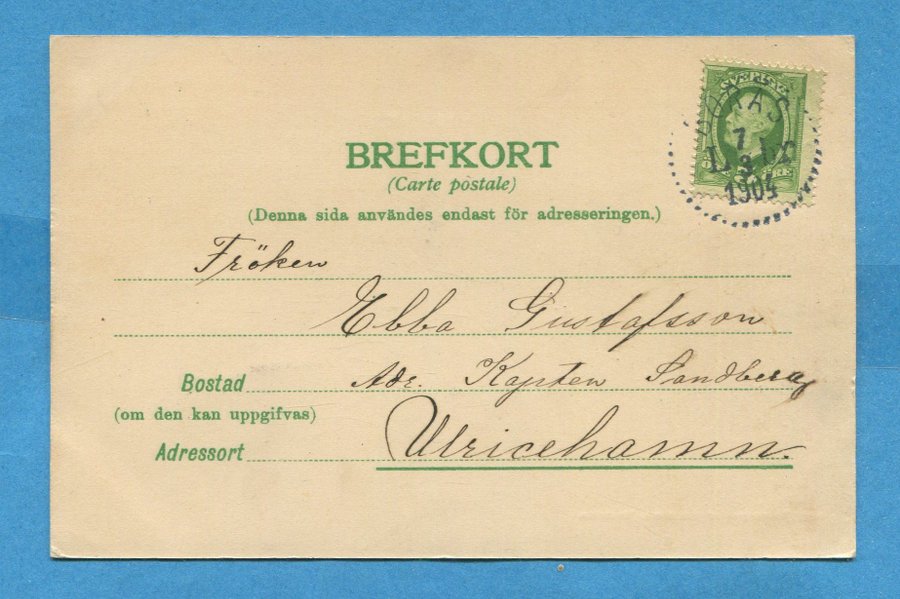 SVERIGE
BORÅS
7
3
1904
ÖRE
BREFKORT
(Carte postale)
(Denna sida användes endast för adresseringen.)
Fröken
Ebba Gustafsson
Bostad Adr. Kapten Sandberg
(om den kan uppgifvas)
Adressort Ulricehamn.